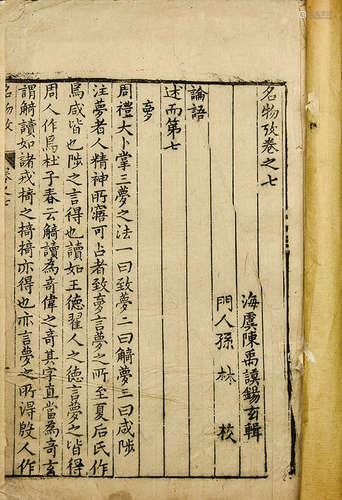 名物攷卷之七
海虞陳禹謨錫玄輯
門人孫林校
論語
述而第七
夢
周禮大卜掌三夢之法一曰致夢二曰觭夢三曰咸陟
注夢者人精神所寤可占者致夢言夢之所至夏后氏作
焉咸皆也陟之言得也讀如王德翟人之德言夢之皆得
周人作焉杜子春云觭讀為奇偉之奇其字直當為奇玄
謂觭讀如諸戎掎之掎掎亦得也亦言夢之所得殷人作
名物攷 卷之七